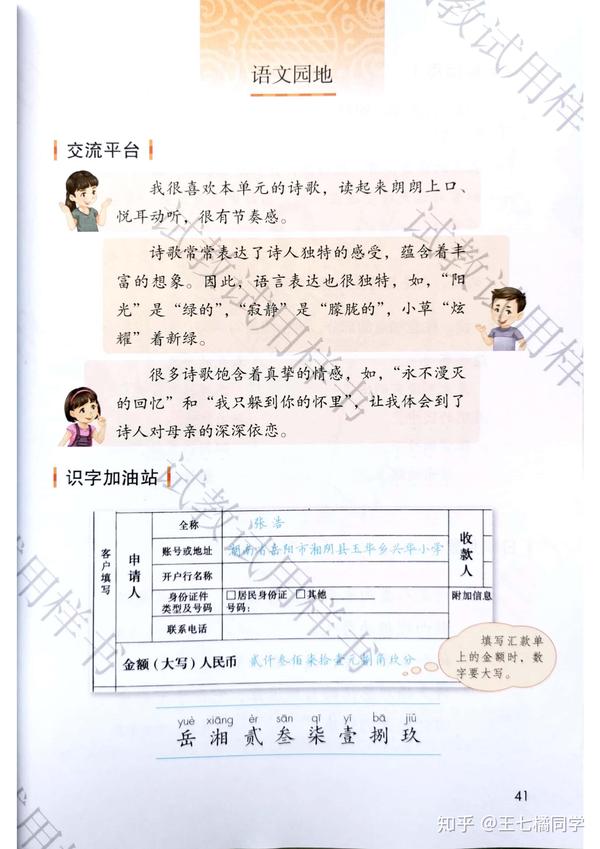 语文园地
交流平台
我很喜欢本单元的诗歌，读起来朗朗上口、
悦耳动听，很有节奏感。
诗歌常常表达了诗人独特的感受，蕴含着丰
富的想象。因此，语言表达也很独特，如，“阳
光”是“绿的”，“寂静”是“朦胧的”，小草“炫
耀”着新绿。
很多诗歌饱含着真挚的情感，如，“永不漫灭
的回忆”和“我只躲到你的怀里”，让我体会到了
诗人对母亲的深深依恋。
识字加油站
客户填写
申请人
全称
张浩
账号或地址
湖南省岳阳市湘阴县玉华乡兴华小学
开户行名称
身份证件
类型及号码
□居民身份证 □其他
号码：
联系电话
收款人
附加信息
金额（大写）人民币
贰仟叁佰柒拾壹元捌角玖分
填写汇款单
上的金额时，数
字要大写。
yuè xiāng èr sān qī yī bā jiǔ
岳 湘 贰 叁 柒 壹 捌 玖
41
知乎 @王七橘同学
试教试用样书
试教试用样书
试教试用样书
试教试用样书